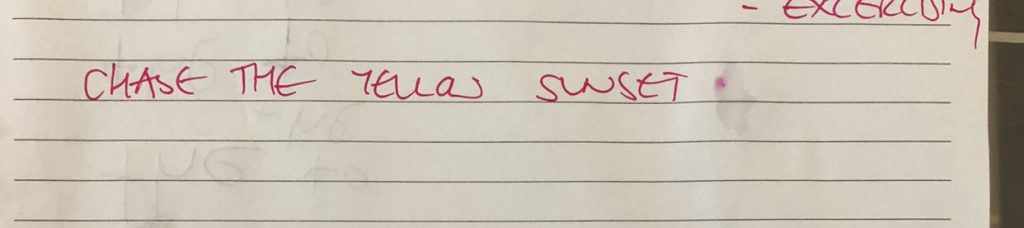 - EXCERCISING
CHASE THE YELLOW SUNSET.